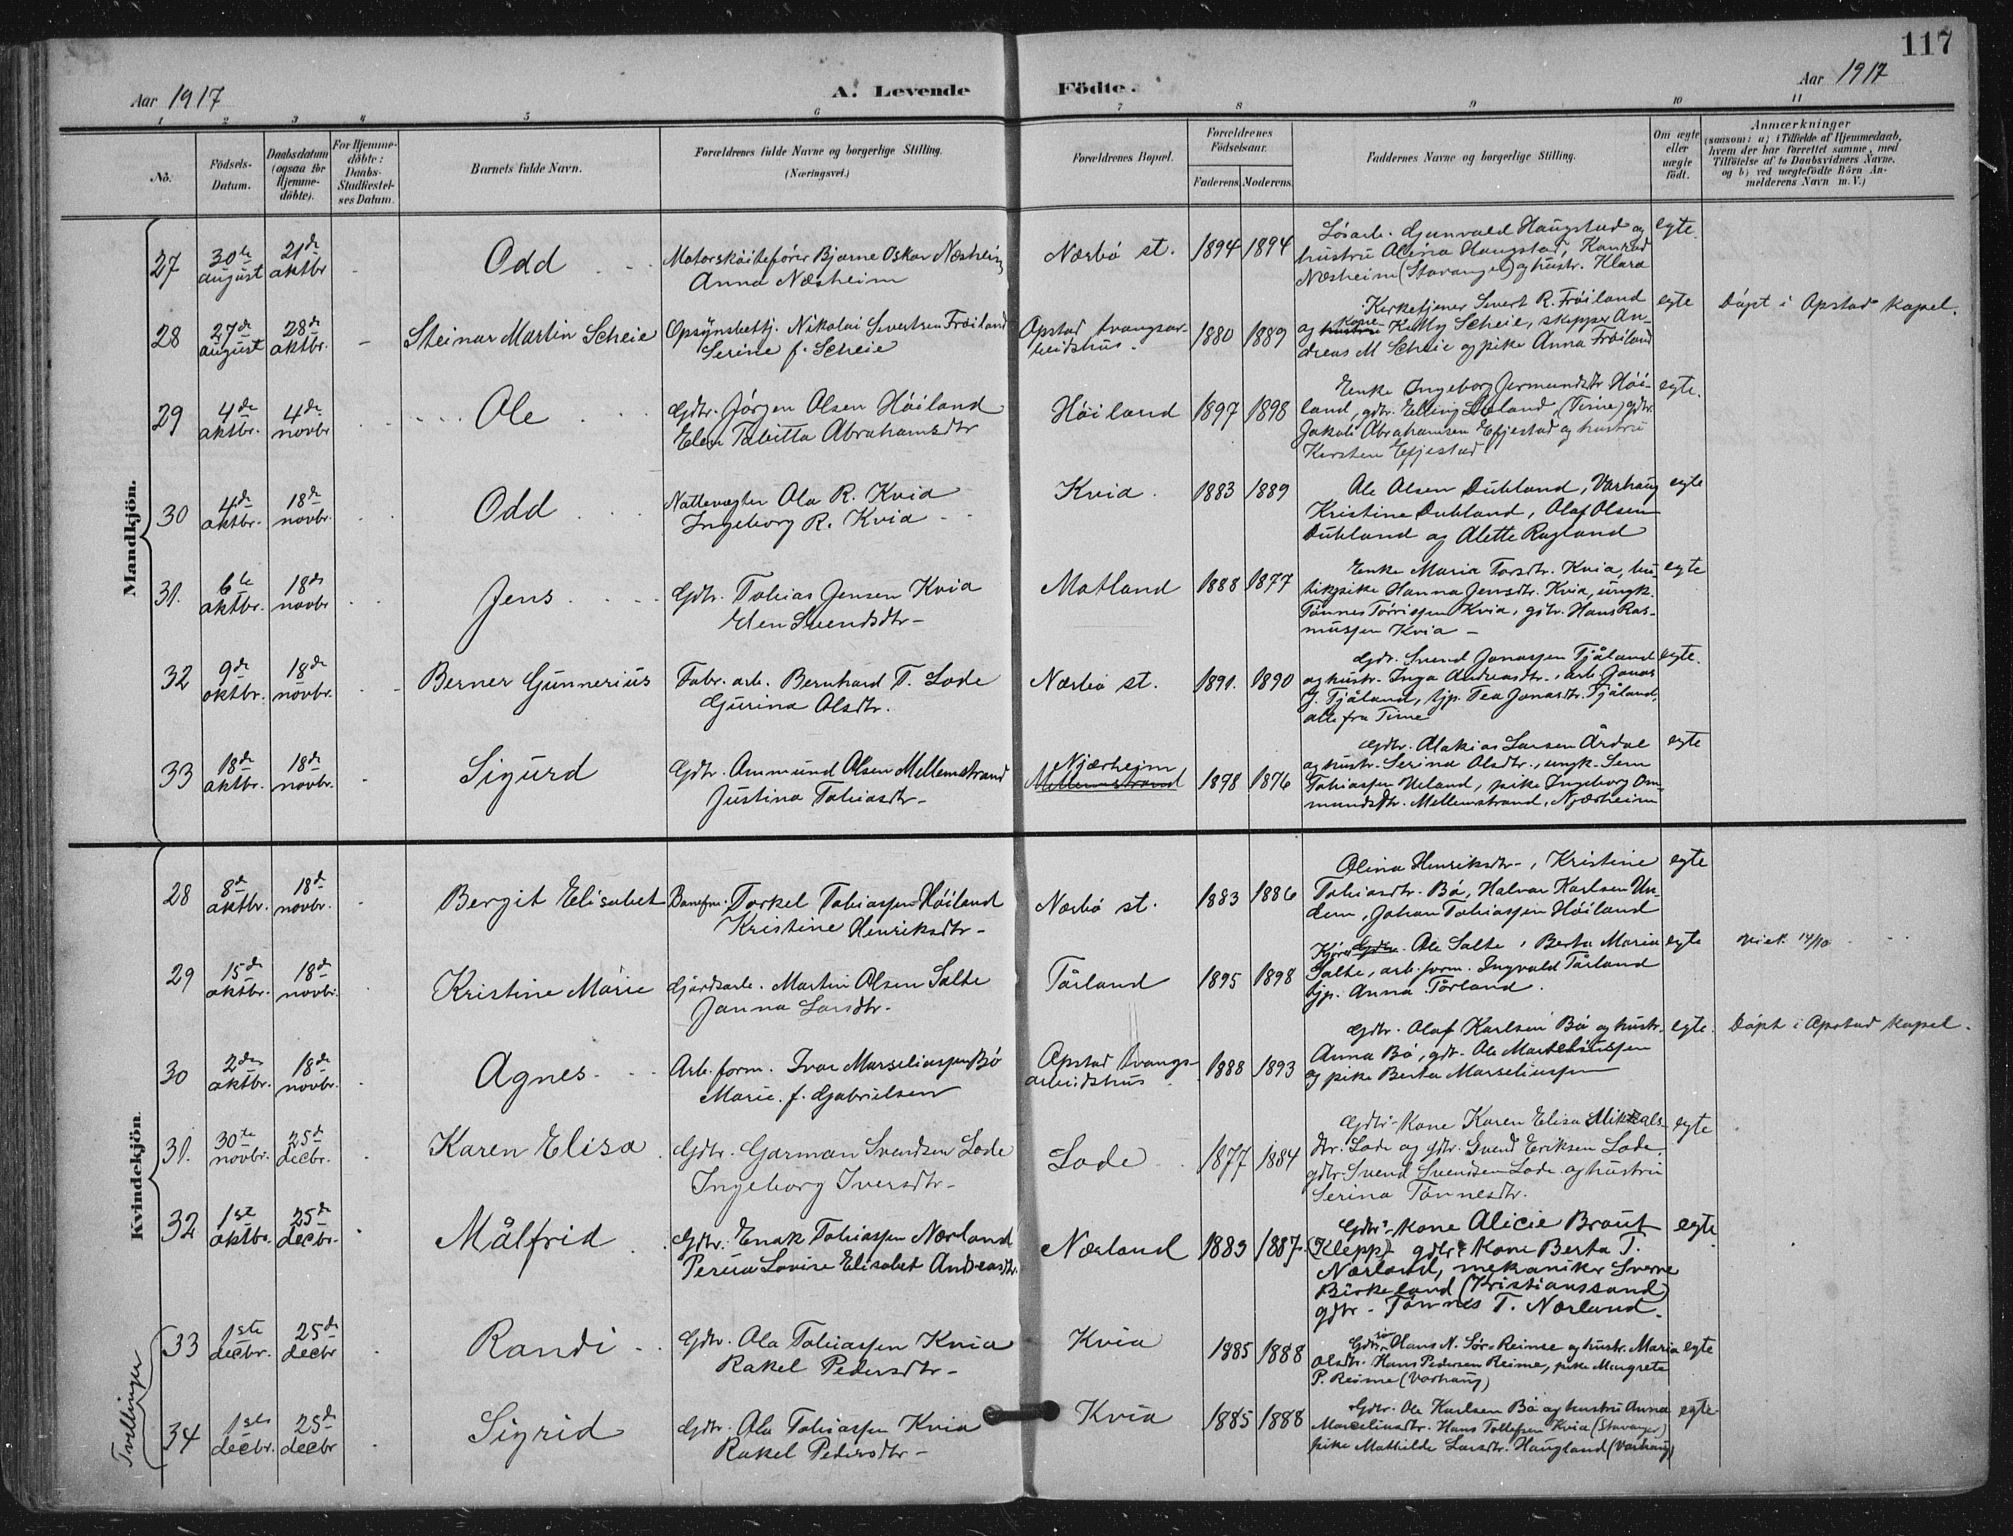 117
Aar 1917
A. Levende
Födte.
Aar 1917
1 2 3 4 5 6 7 8 9 10 11
No. Födsels-Datum. Daabsdatum (ogsaa for Hjemme-döbte). For Hjemme-döbte: Daabs-Stadfæstel-ses Datum. Barnets fulde Navn. Forældrenes fulde Navne og borgerlige Stilling. (Næringsvei.) Forældrenes Bopæl. Forældrenes Födselsaar. Faderens. Moderens. Faddernes Navne og borgerlige Stilling. Om ægte eller uægte födt. Anmærkninger
(saasom: a) i Tilfælde af Hjemmedaab,
hvem der har forrettet samme, med
Tilföielse af to Daabsvidners Navne,
og b) ved uægtefödte Börn An-
melderens Navn m. V.)
Mandkjön.
27 30te august 21de oktbr Odd Motorskøitefører Bjarne Oskar Næsheim
Anna Næsheim
Nærbø st. 1894 1894
Løsarb. Gunvald Haugstad og
hustru Alina Haugstad, Konrad
Næsheim (Stavanger) og hustr. Klara
egte
28 27de august 28de oktbr. Steinar Martin Scheie Opsynsbettj. Nikolai Severtsen Frøiland
Serine f. Scheie
Opstad tvangsar-
beidshus. 1880 1889
Kirketjener Severt R. Frøiland
og hustru Kone Kitty Scheie, skipper An-
dreas M Scheie og pike Anna Frøiland
egte Døpt i Opstad kapel.
29 4de oktbr. 4de novbr Ole Gdbr. Jørgen Olsen Høiland
Elen Tabitta Abrahamsdtr
Høiland 1897 1898
Enke Ingeborg Jermundsdtr Høi-
land, gdbr. Elling (Time) gdbr.
Jakob Abrahamsen Efjestad og hustru
Kirsten Efjestad
egte.
30 4de oktbr. 18de novbr. Odd Nattevægter Ola R. Kvia
Ingeborg R. Kvia
Kvia. 1883 1889
Ole Olsen Dubland, Varhaug
Kristine Dubland, Olaf Olsen
Dubland og Alette Rugland
egte
31. 6te oktbr. 18de novbr Jens Gdbr. Tobias Jensen Kvia
Elen Svendsdtr
Motland 1888 1877
Enke Maria Torsdtr. Kvia, bu-
tikpike Hanna Jensdtr. Kvia, ungk.
Tønnes Tørrissen Kvia, gdbr. Hans Ras-
mussen Kvia
egte
32 9de oktbr. 18de novbr. Berner Gunnerius Fabr. arb. Bernhard T. Lode
Gurina Olsdtr.
Nærbø st. 1891. 1890
Gdbr. Svend Jonassen Tjåland
og hustr. Inga Andreasdtr., arb. Jonas
J. Tjåland, tjp. Tea Jonasdtr. Tjåland,
alle fra Time
egte.
33 18de oktbr. 18de novbr. Sigurd Gdbr. Ommund Olsen Mellemstrand
Justina Tobiasdtr
Njærheim
Mellemstrand 1878 1876
Gdbr. Malakias Larsen Årdal
og hustr. Serina Olsdtr., ungk. Sem
Tobiassen Ueland, pike Ingeborg Om-
mundsdtr. Mellemstrand, Njærheim
egte
Kvindekjön.
28 8de oktbr. 18de novbr. Bergit Elisabet Banefm. Torkel Tobiassen Høiland
Kristine Henriksdtr
Nærbø st. 1883 1886
Olina Henriksdtr, Kristine
Tobiasdtr. Bø, Halvar Karlsen Un-
dem, Johan Tobiassen Høiland
egte
29 15de oktbr. 18de novbr. Kristine Marie Gårdsarb. Martin Olsen Salte
Janna Larsdtr.
Tårland 1895 1898
Kjører Gdbr. Ole Salte, Berta Maria
Salte, arb. form. Ingvald Tårland
tjp. Anna Tårland.
egte viet 14/10
30 2den oktbr. 18de novbr. Agnes Arb. form. Ivar Marseliussen Bø
Marie. f. Gabrielsen
Opstad tvangs-
arbeidshus 1888 1893
Gdbr. Olaf Karlsen Bø og hustr.
Anna Bø, gdbr. Ole Marseliussen
og pike Berta Marseliussen
egte. Døpt i Opstad kapel.
31. 30te novbr. 25de decbr. Karen Elisa Gdbr. Garman Svendsen Lode
Ingeborg Iversdtr
Lode 1877 1884
Gdbr-kone Karen Elisa Mikkals-
dtr. Lode og gdbr. Svend Eriksen Lode,
gdbr. Svend Svendsen Lode og hustru
Serina Tønnesdtr.
egte
32 1ste oktbr. 25de decbr. Målfrid Gdbr. Enok Tobiassen Nærland
Perua Lovise Elisabet Andreasdtr.
Nærland 1883 1887.
Gdbr-kone Alicie Braut
(Klepp) gdbr-kone Berta T.
Nærland, mekaniker Sverre
Birkeland (Kristianssand)
gdbr. Tønnes T. Nærland.
egte
Tvillinger
33 1ste decbr. 25de decbr Randi Gdbr. Ola Tobiassen Kvia
Rakel Pedersdtr
Kvia 1885 1888
Gdbr. Hans N. Sør-Reime og hustr. Maria
Olsdtr. Hans Pedersen Reime, pike Margrete
P. Reime (Varhaug)
egte
34 1ste decbr. 25de decbr Sigrid Gdbr. Ola Tobiassen Kvia
Rakel Pedersdtr
Kvia 1885 1888
Gdbr. Ole Karlsen Bø og hustru Anna
Marseliusdtr. Hans Tollefsen Kvia (Stavanger)
pike Mathilde Larsdtr. Haugland (Varhaug)
egte